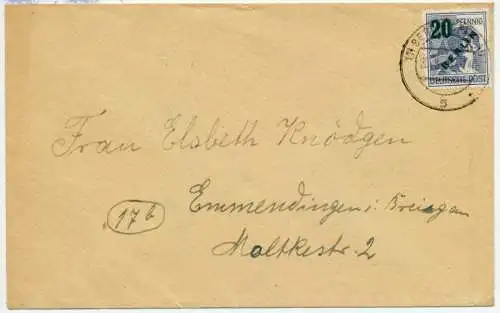 20 PFENNIG
BERLIN
DEUTSCHE POST
5
Frau Elsbeth Knödgen
17b
Emmendingen i. Breisgau
Moltkestr. 2